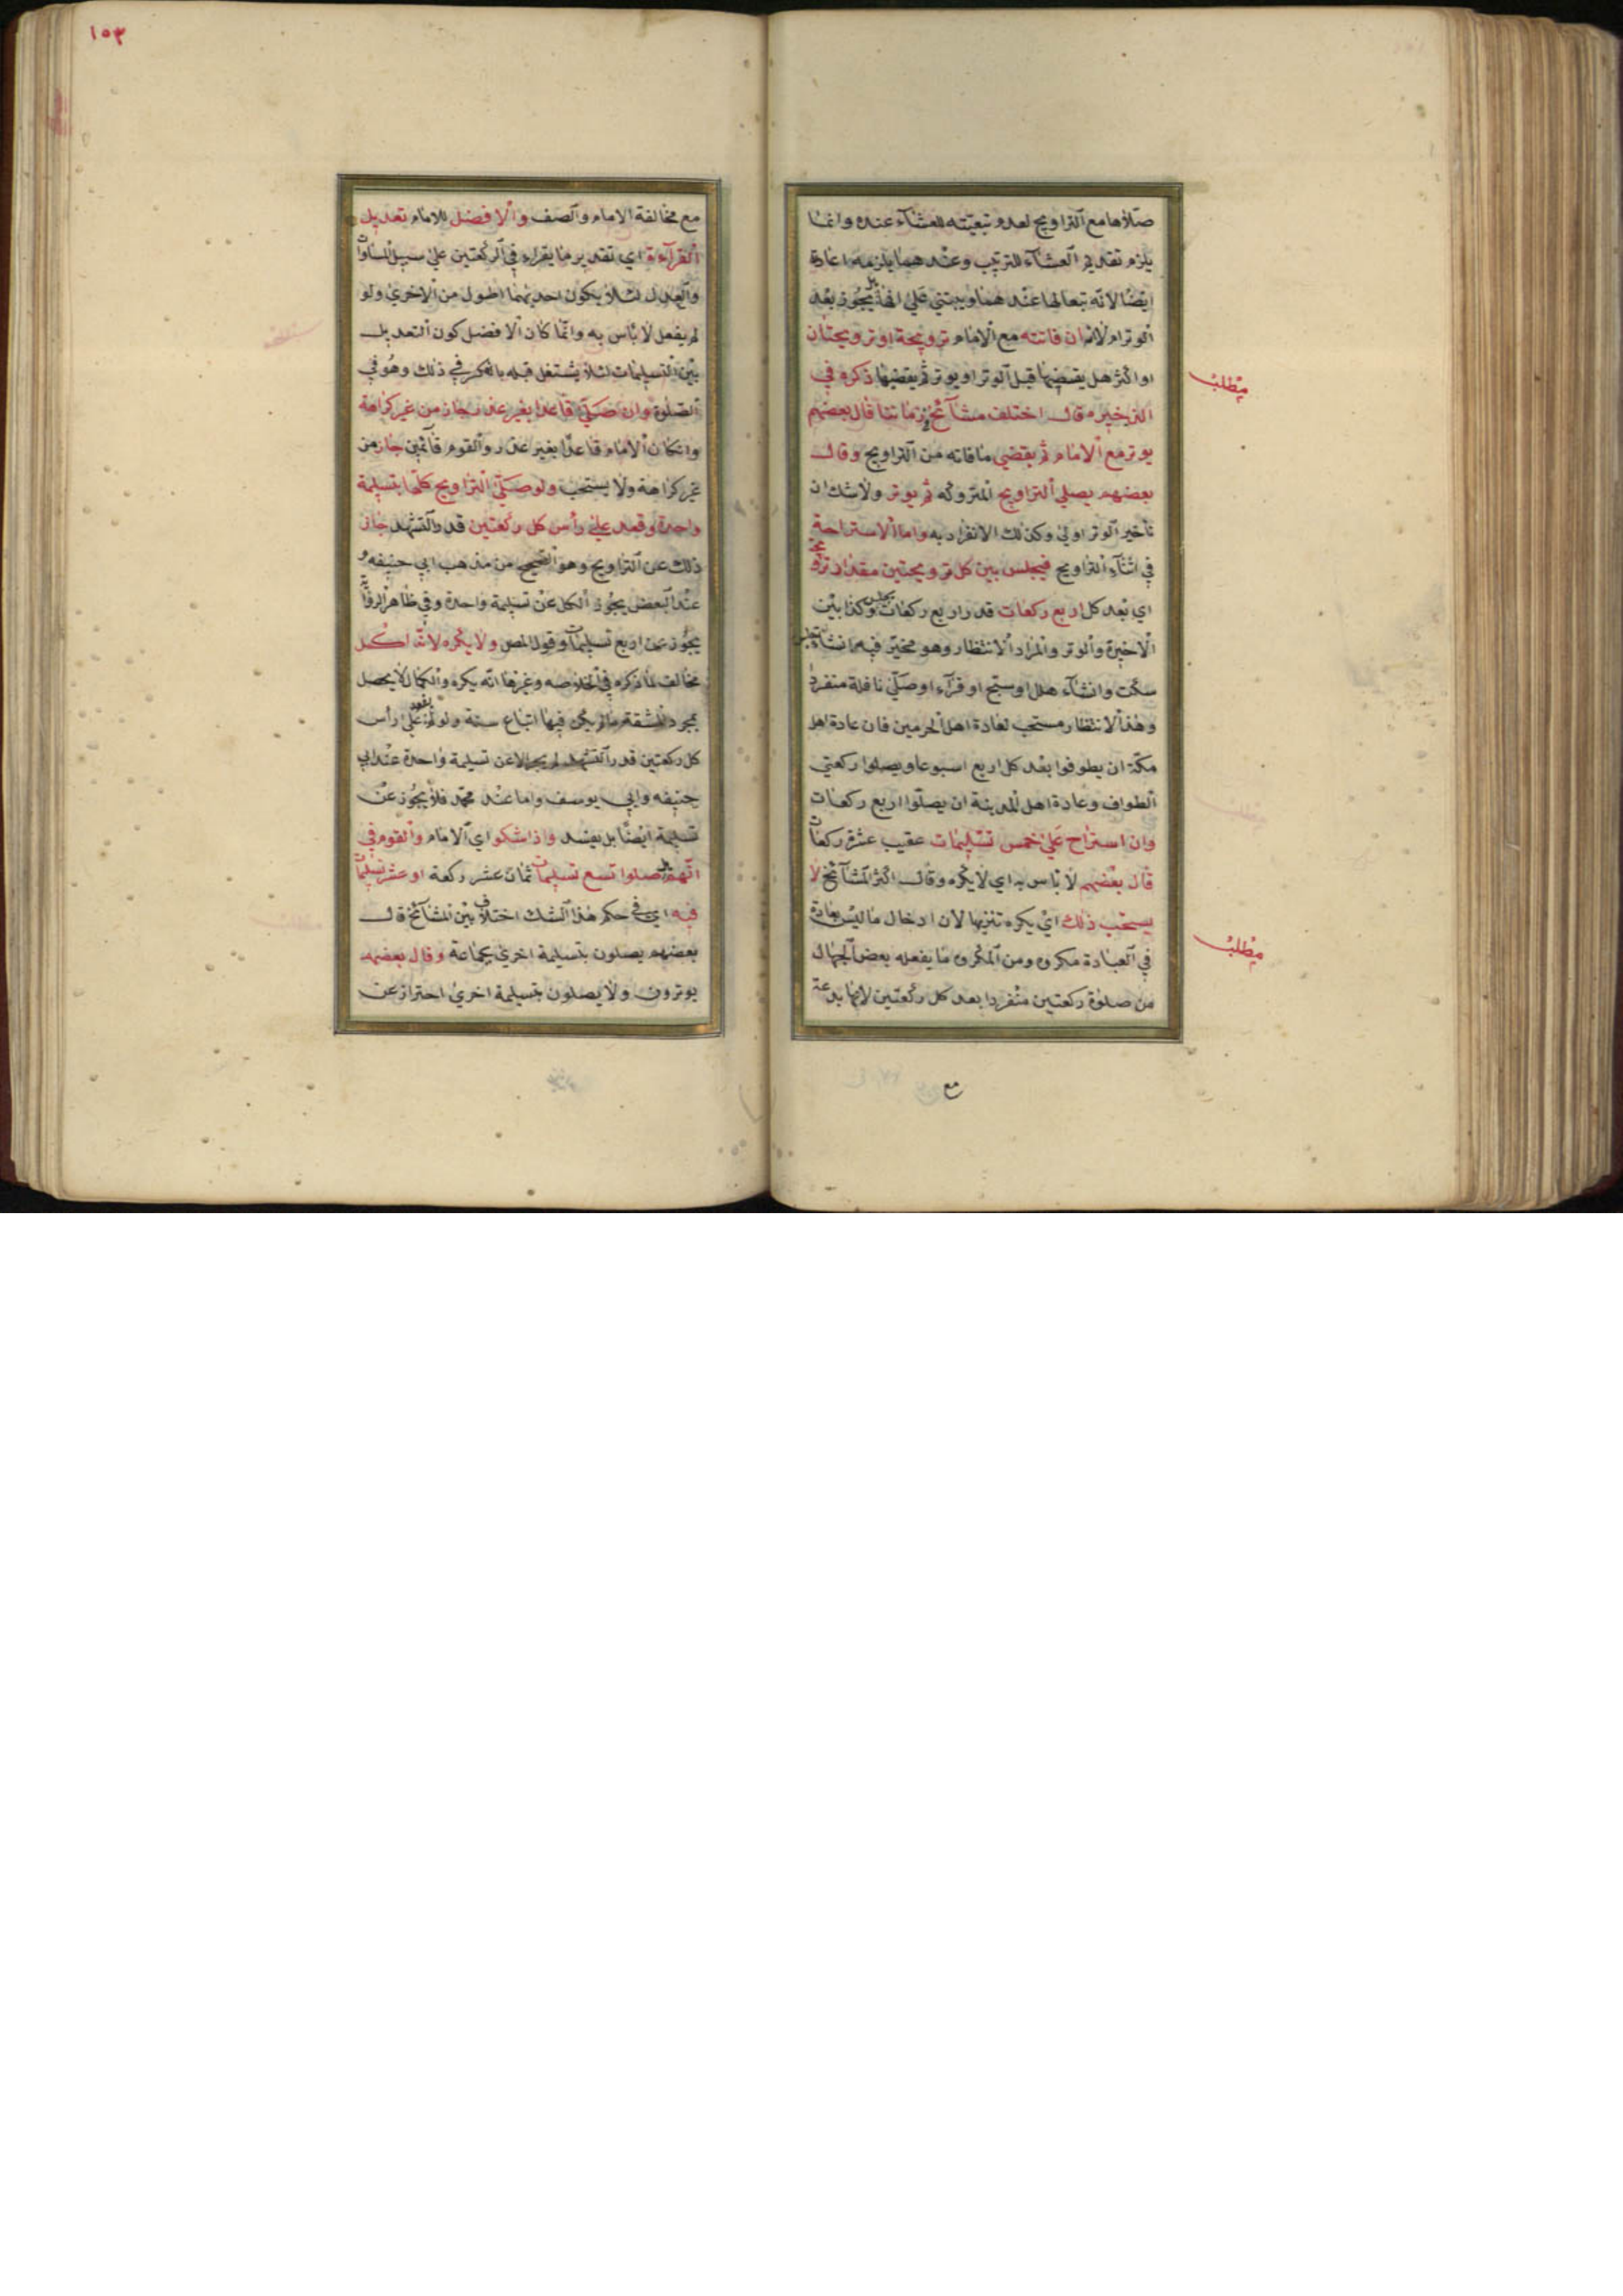 صلاها مع التراويح لعدم تبعيته للعشآء عنده وانما
يلزم تقديم العشآء للترتيب وعندهما يلزمه اعادة
ايضا لانه تبع لها عندهما ويبتني على انها هل يجوز بعد
الوتر ام لا انه ان فاتته مع الامام ترويحة او ترويحتان
او اكثر هل يقضيها قبل الوتر او يوتر ثم يقضيها ذكره في
الذخيره قال اختلف مشآئخ زماننا قال بعضهم
يوتر مع الامام ثم يقضي ما فاته من التراويح وقال
بعضهم يصلي التراويح المتروكه ثم يوتر ولا شك ان
تأخير الوتر اولى وكذلك الانفراد به واما الاستراحة
في اثنآء التراويح فيجلس بين كل ترويحتين مقدار ترويحة
اي بعد كل اربع ركعات قدر اربع ركعات وكذا يجلس بين
الاخيرة والوتر والمراد الانتظار وهو مخير فيه ان شآء جلس
سكت وان شآء هلل او سبح او قرآء او صلى نافلة منفردا
وهذا الانتظار مستحب لعادة اهل الحرمين فان عادة اهل
مكة ان يطوفوا بعد كل اربع اسبوعا ويصلوا ركعتي
الطواف وعادة اهل المدينة ان يصلوا اربع ركعات
وان استراح على خمس تسليمات عقيب عشر ركعات
قال بعضهم لا بأس به اي لا يكره وقال اكثر المشآئخ لا
يستحب ذلك اي يكره تنزيها لان ادخال ما ليس بعادة
في العبادة مكروه ومن المكروه ما يفعله بعض الجهال
من صلوة ركعتين منفردا بعد كل ركعتين لانها بدعة
مع
مطلب
مطلب
١٥٣
مع مخالفة الامام والصف والافضل للامام تعديل
القرآءة اي تقدير ما يقراء في الركعتين على سبيل المساواة
والعدل لئلا يكون احديهما اطول من الاخرى ولو
لم يفعل لا بأس به وانما كان الافضل كون التعديل
بين التسليمات لئلا يشتغل قبله بالفكر في ذلك وهو في
الصلوة وان صلى قاعدا بغير عذر جاز من غير كراهة
وان كان الامام قاعدا بغير عذر والقوم قآئمين جاز من
غير كراهة ولا يستحب ولو صلى التراويح كلها بتسليمة
واحدة وقعد على رأس كل ركعتين قدر التشهد جاز
ذلك عن التراويح وهو الصحيح من مذهب ابي حنيفه و
عند البعض يجوز الكل عن تسليمة واحدة وفي ظاهر الرواية
يجوز عن اربع تسليمات وقول المص ولا يكره لانه اكمل
مخالف لما ذكره في الخلاصه وغيرها انه يكره والكمال لا يحصل
بمجرد المشقة ما لم يكن فيها اتباع سنة ولو لم يقعد على رأس
كل ركعتين قدر التشهد لم يجز الا عن تسليمة واحدة عند ابي
حنيفه وابي يوسف واما عند محمد فلا يجوز عن
تسليمة ايضا بل يفسد واذا شكوا اي الامام والقوم في
انهم هل صلوا تسع تسليمات ثمان عشر ركعة او عشر تسليمات
فيه اي في حكم هذا الشك اختلاف بين المشآئخ قال
بعضهم يصلون بتسليمة اخرى بجماعة وقال بعضهم
يوترون ولا يصلون بتسليمة اخرى احتراز عن